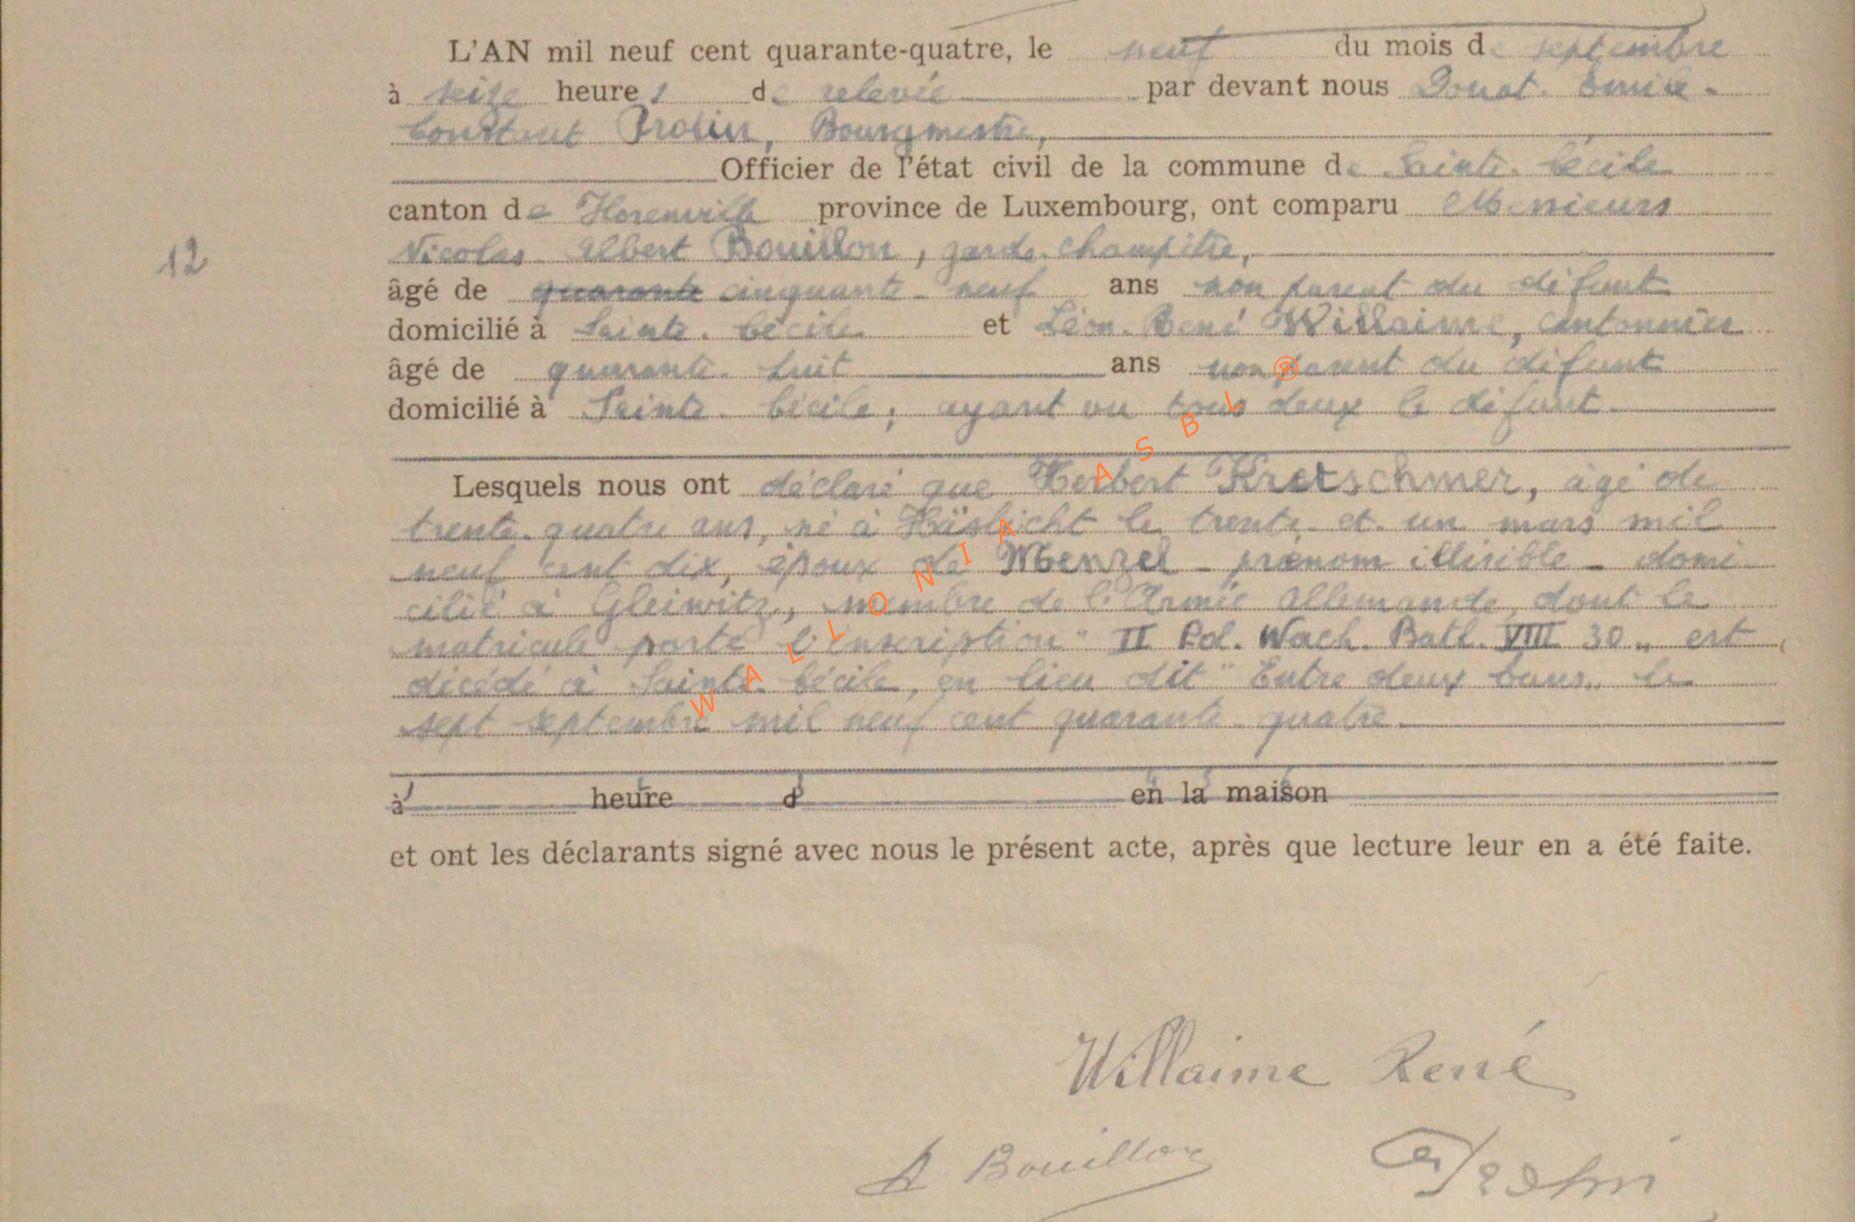 L'AN mil neuf cent quarante-quatre, le neuf du mois de septembre
à seize heures de relevée par devant nous Donat. Emile.
Constant Protin, Bourgmestre,
Officier de l'état civil de la commune de Sainte. Cécile
canton de Florenville province de Luxembourg, ont comparu Messieurs
12
Nicolas Albert Bouillon, garde. champêtre,
âgé de quarante cinquante-neuf ans non parent du défunt
domicilié à Sainte. Cécile et Léon. René Willaime, cantonnier
âgé de quarante. huit ans non parent du défunt
domicilié à Sainte. Cécile, ayant vu tous deux le défunt.
Lesquels nous ont déclaré que Herbert Kretschmer, âgé de
trente. quatre ans, né à Häslicht le trente. et. un mars mil
neuf cent dix, époux de Menzel - prénom illisible - domi
cilié à Gleiwitz, membre de l'Armée Allemande, dont le
matricule porte l'inscription " II Pol. Wach. Batl. VIII 30 " est
décédé à Sainte. Cécile, en lieu dit " Entre deux bans " le
sept septembre mil neuf cent quarante quatre.
à heure d en la maison
et ont les déclarants signé avec nous le présent acte, après que lecture leur en a été faite.
Willaime René
A Bouillon
WALLONIA ASBL ®